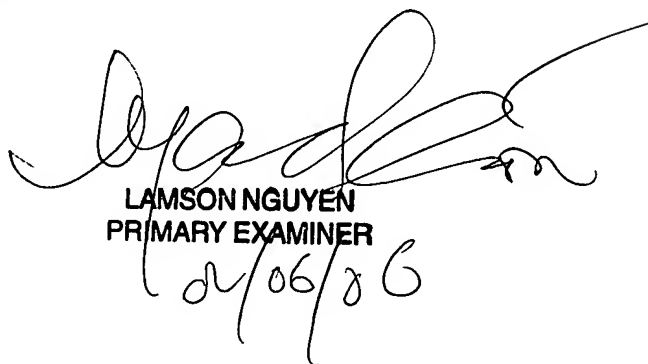 LAMSON NGUYEN
PRIMARY EXAMINER
02/06/06